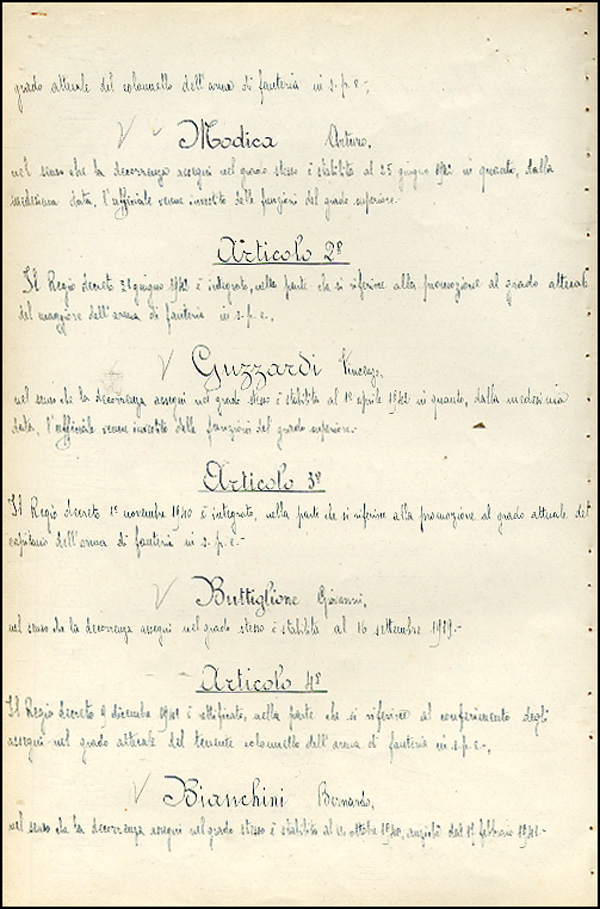 grado attuale del colonnello dell'arma di fanteria in s.p.e.-,
Modica Arturo,
nel senso che la decorrenza assegni nel grado stesso è stabilita al 25 giugno 1942 in quanto, dalla
medesima data, l'ufficiale venne investito delle funzioni del grado superiore.-
Articolo 2º
Il Regio decreto giugno 1942 è integrato, nella parte che si riferisce alla promozione al grado attuale
del maggiore dell'arma di fanteria in s.p.e.,
Guzzardi Vincenzo,
nel senso che la decorrenza assegni nel grado stesso è stabilita al 1º aprile 1942 in quanto, dalla medesima
data, l'ufficiale venne investito delle funzioni del grado superiore.-
Articolo 3º
Il Regio decreto 1º novembre 1940 è integrato, nella parte che si riferisce alla promozione al grado attuale del
capitano dell'arma di fanteria in s.p.e.-
Buttiglione Giovanni,
nel senso che la decorrenza assegni nel grado stesso è stabilita al 16 settembre 1939.-
Articolo 4º
Il Regio decreto 9 dicembre 1941 è rettificato, nella parte che si riferisce al conferimento degli
assegni nel grado attuale del tenente colonnello dell'arma di fanteria in s.p.e.-,
Bianchini Bernardo,
nel senso che la decorrenza assegni nel grado stesso è stabilita al ottobre 1940, anziché dal febbraio 1941.-